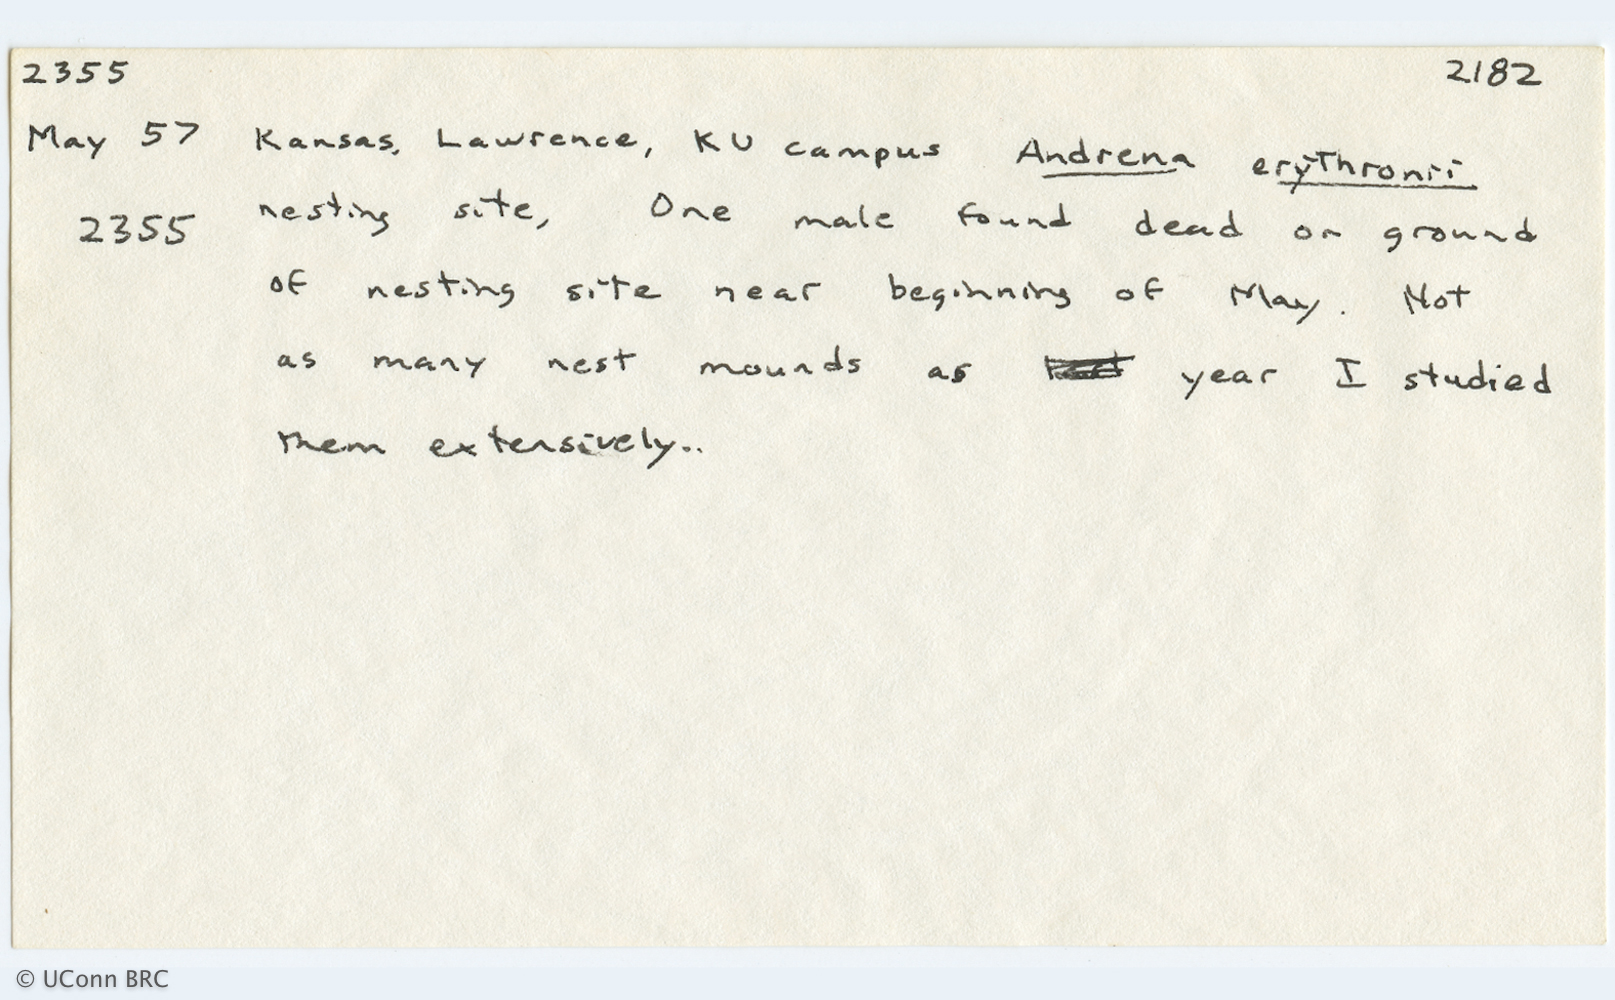 2355 2182
May 57 Kansas, Lawrence, KU campus Andrena erythronii
2355 nesting site, One male found dead on ground
of nesting site near beginning of May. Not
as many nest mounds as year I studied
them extensively..
© UConn BRC